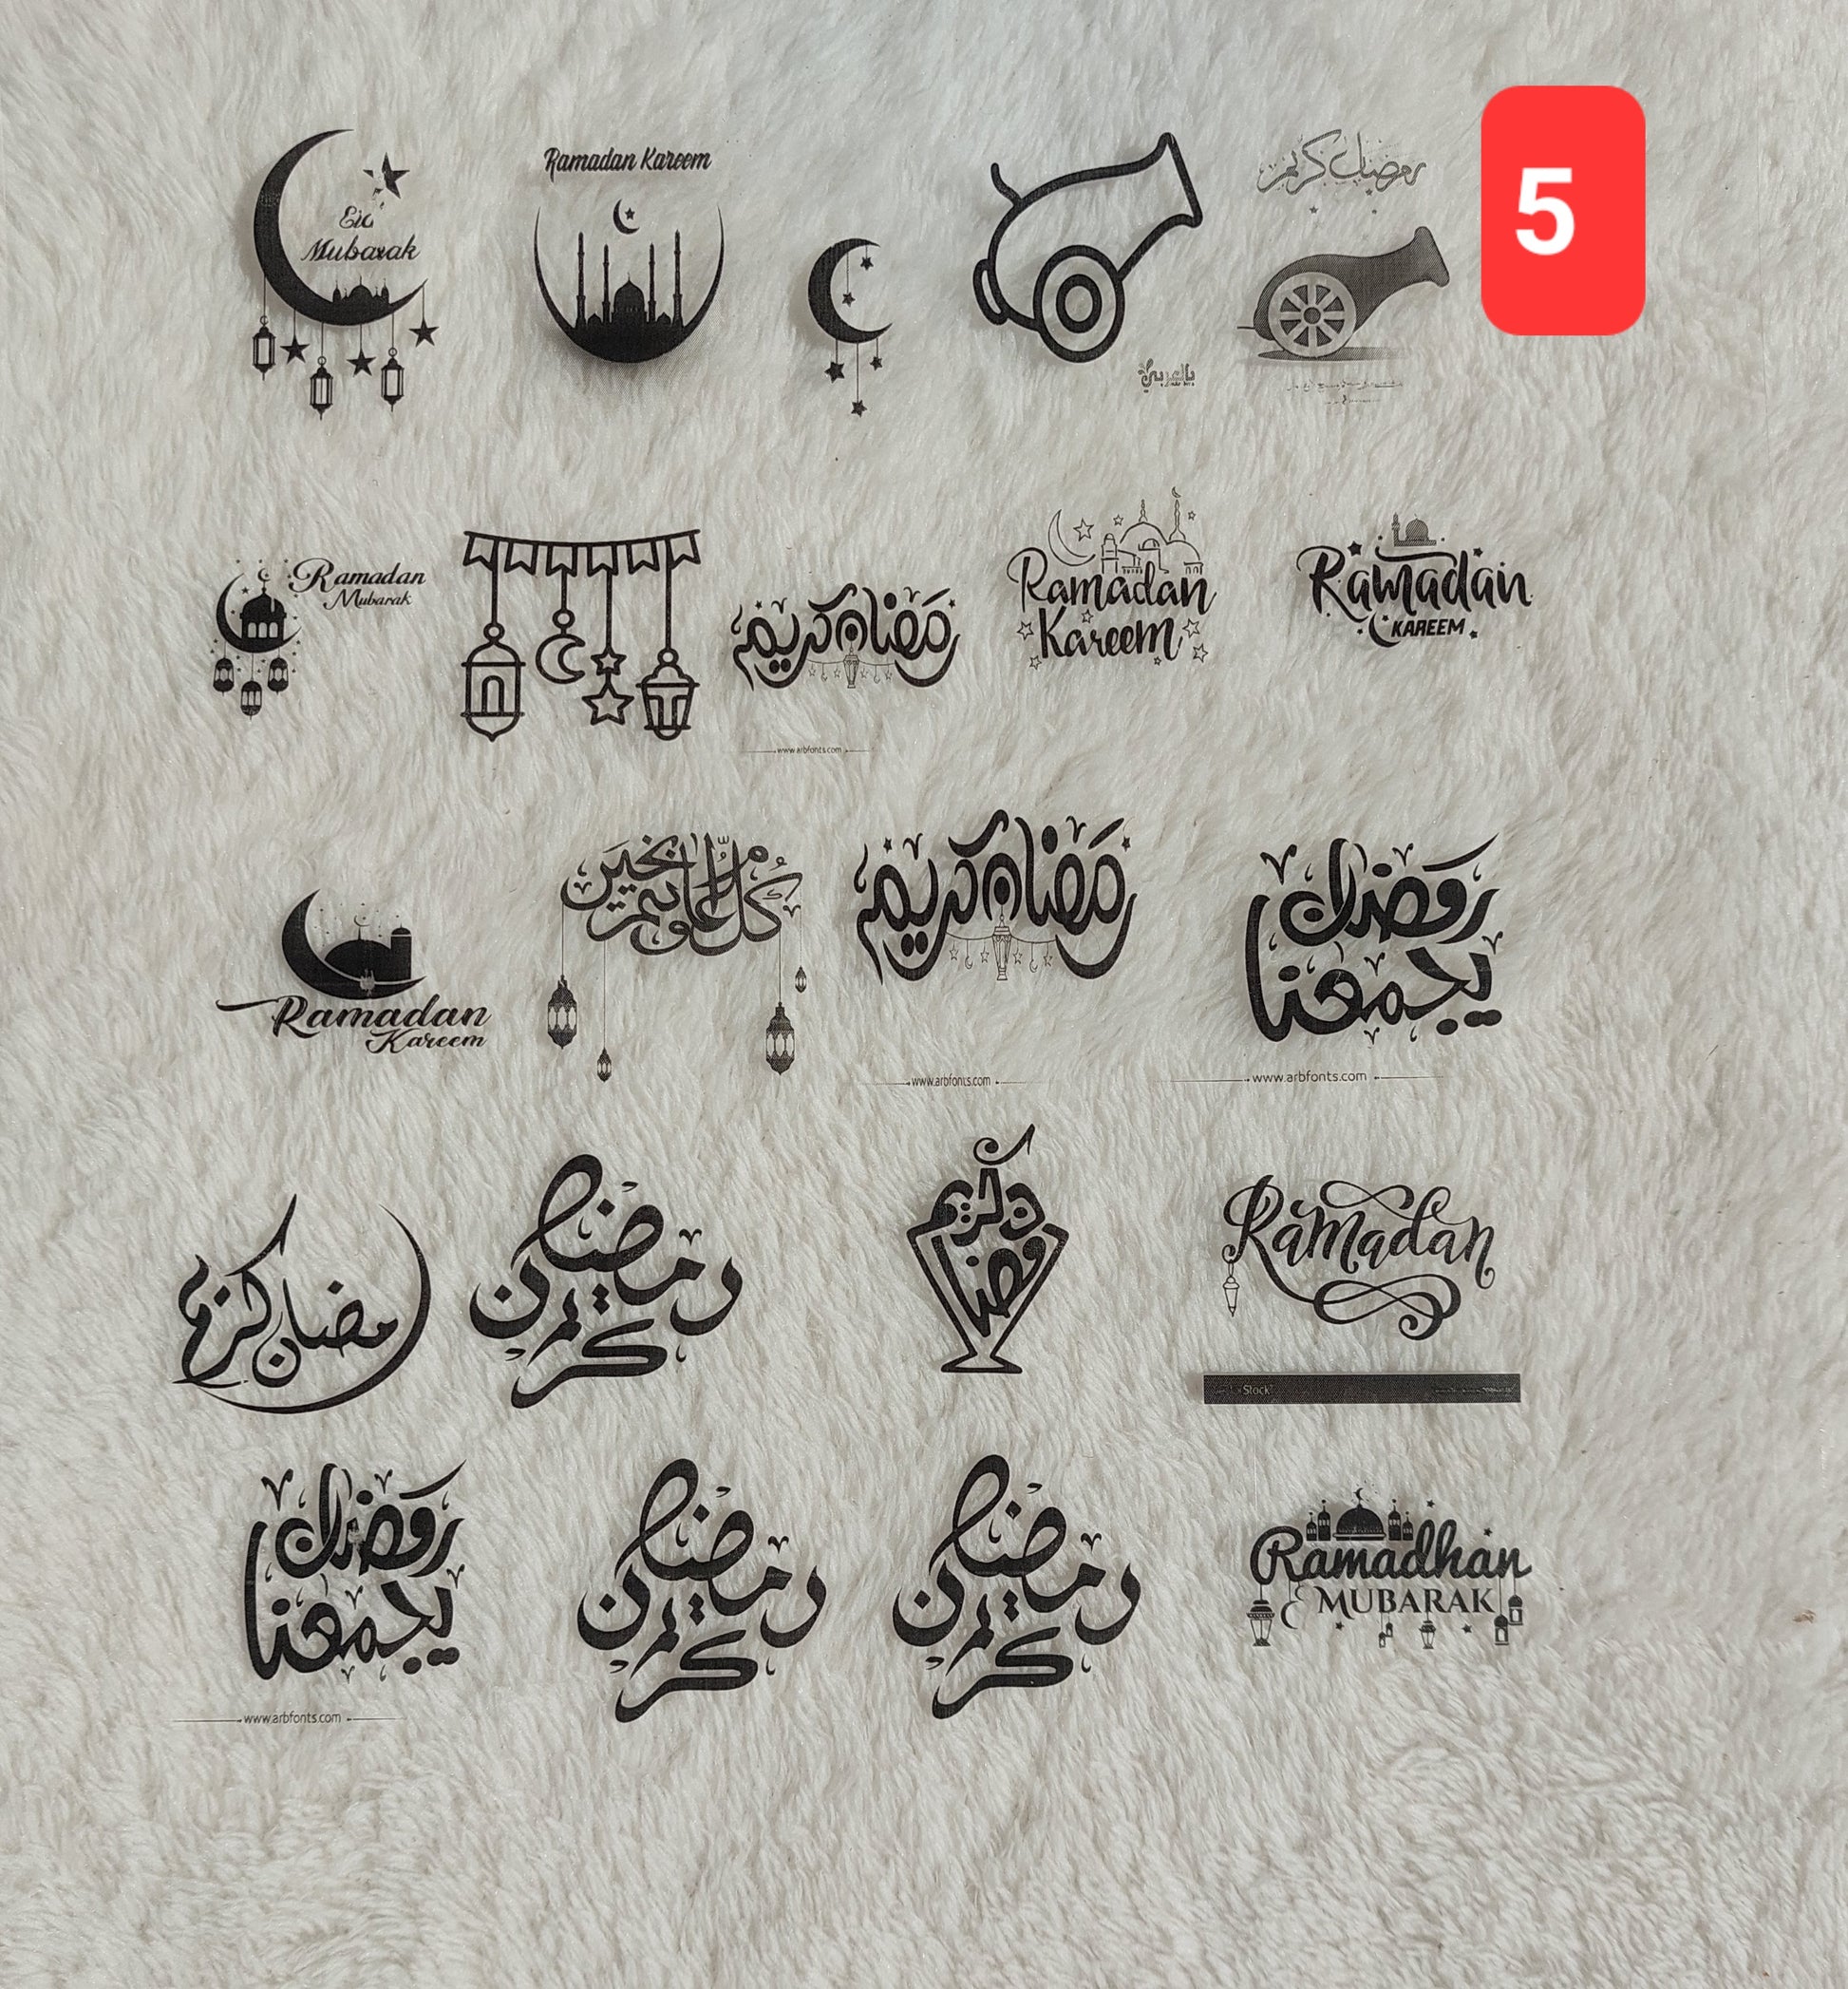 5
Eid
Mubarak
Ramadan Kareem
بالعربي
رمضان كريم
Ramadan
Mubarak
رمضان كريم
www.arbfonts.com
Ramadan
Kareem
Ramadan
KAREEM
Ramadan
Kareem
كل عام وأنتم بخير
رمضان كريم
www.arbfonts.com
رمضان
يجمعنا
www.arbfonts.com
رمضان كريم
رمضان
كريم
كريم
رمضان
Ramadan
Stock
رمضان
يجمعنا
www.arbfonts.com
رمضان
كريم
رمضان
كريم
Ramadhan
MUBARAK